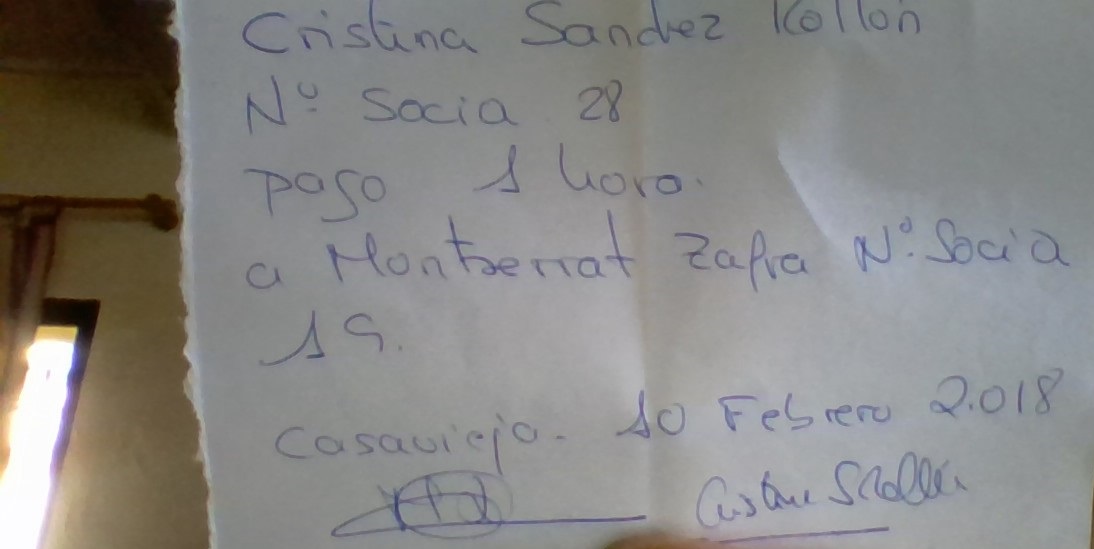 Cristina Sanchez Rollón
Nº Socia 28
pago 1 hora.
a Montserrat Zafra Nº. Socia
19.
Casavieja. 10 Febrero 2.018